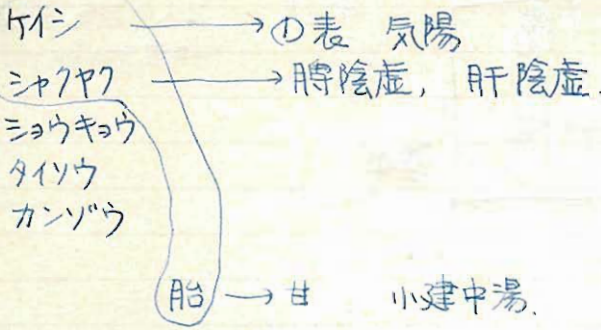 ケイシ → ①表 気陽
シャクヤク → 脾陰虚, 肝陰虚.
ショウキョウ
タイソウ
カンゾウ
胎 → 甘 小建中湯.